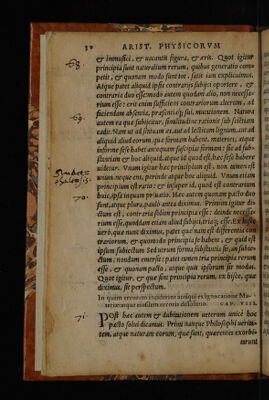 30 ARIST. PHYSICORVM
68. & immusici, & vacantis figura, & æris. Quot igitur
principia sunt naturalium rerum, quibus generatio competit,
& quonam modo sunt tot, satis iam explicuimus.
Atque patet aliquid ipsis contrarijs subijci oportere, &
contraria duo esse: modo autem quodam alio, non necessarium
69. esse: erit enim sufficiens contrariorum alterum, ad
faciendam absentia, præsentiáq; sui, mutationem. Natura
autem ea quæ subijcitur, similitudine rationis sub scientiam
cadit. Nam ut ad statuam es, aut ad lecticam lignum, aut ad
aliquid aliud eorum, quæ formam habent, materies, atque
informe sese habet antequam susceperit formam: sic ad substantiam
& hoc aliquid, atque id quod est, hæc sese habere
videtur. Vnum igitur hæc principium est, non tamen est
unum neque ens, perinde atque hoc aliquid. Vnum etiam
principium est ratio: & insuper id, quod est contrarium
70. huic, ipsa inquam priuatio. Hæc autem quo pacto duo
sunt, atque plura, paulò antea diximus. Primùm igitur dictum
est, contraria solùm principia esse: deinde necessarium
esse, quoddam etiam aliud subijci, triáq; esse. Ex hisce
uerò, quæ nunc diximus, patet quænam est differentia contrariorum,
& quomodo principia se habent, & quid est
ipsum subiectum. Sed utrum forma substantia sit, an subiectum,
nondum emersit: patet tamen tria principia rerum
esse, & quonam pacto, atque quis ipsorum sit modus.
Quot igitur, & quæ sint principia rerum, ex hisce, quæ
diximus, sit perspectum.
In quem errorem inciderint antiqui ex ignoratione Materiæ:
eiusdem erroris dissolutio. CAP. VIII.
71. POst hæc autem & dubitationem ueterum unicè hoc
pacto solui dicamus. Primi nanque Philosophi ueritatem,
atque naturam eorum, quæ sunt, quærentes exorbitarunt